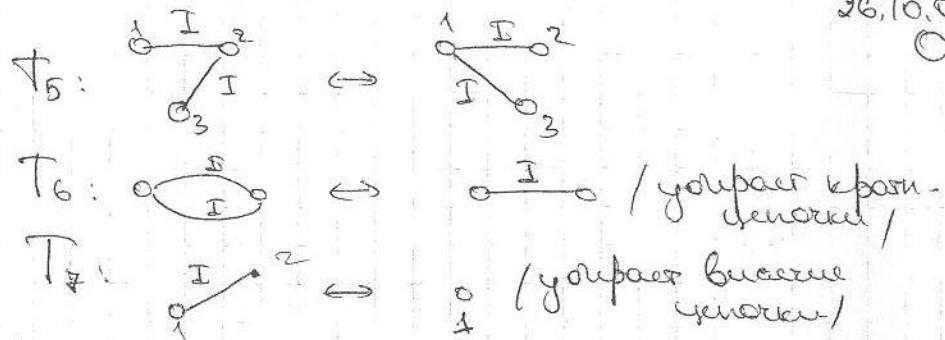 26.10.
1 I 2 1 I 2
T5: I 3 ↔ I 3
T6: I I ↔ I / убирает кратн.
цепочки /
T7: I 2 1 ↔ 1 / убирает висячие
цепочки /